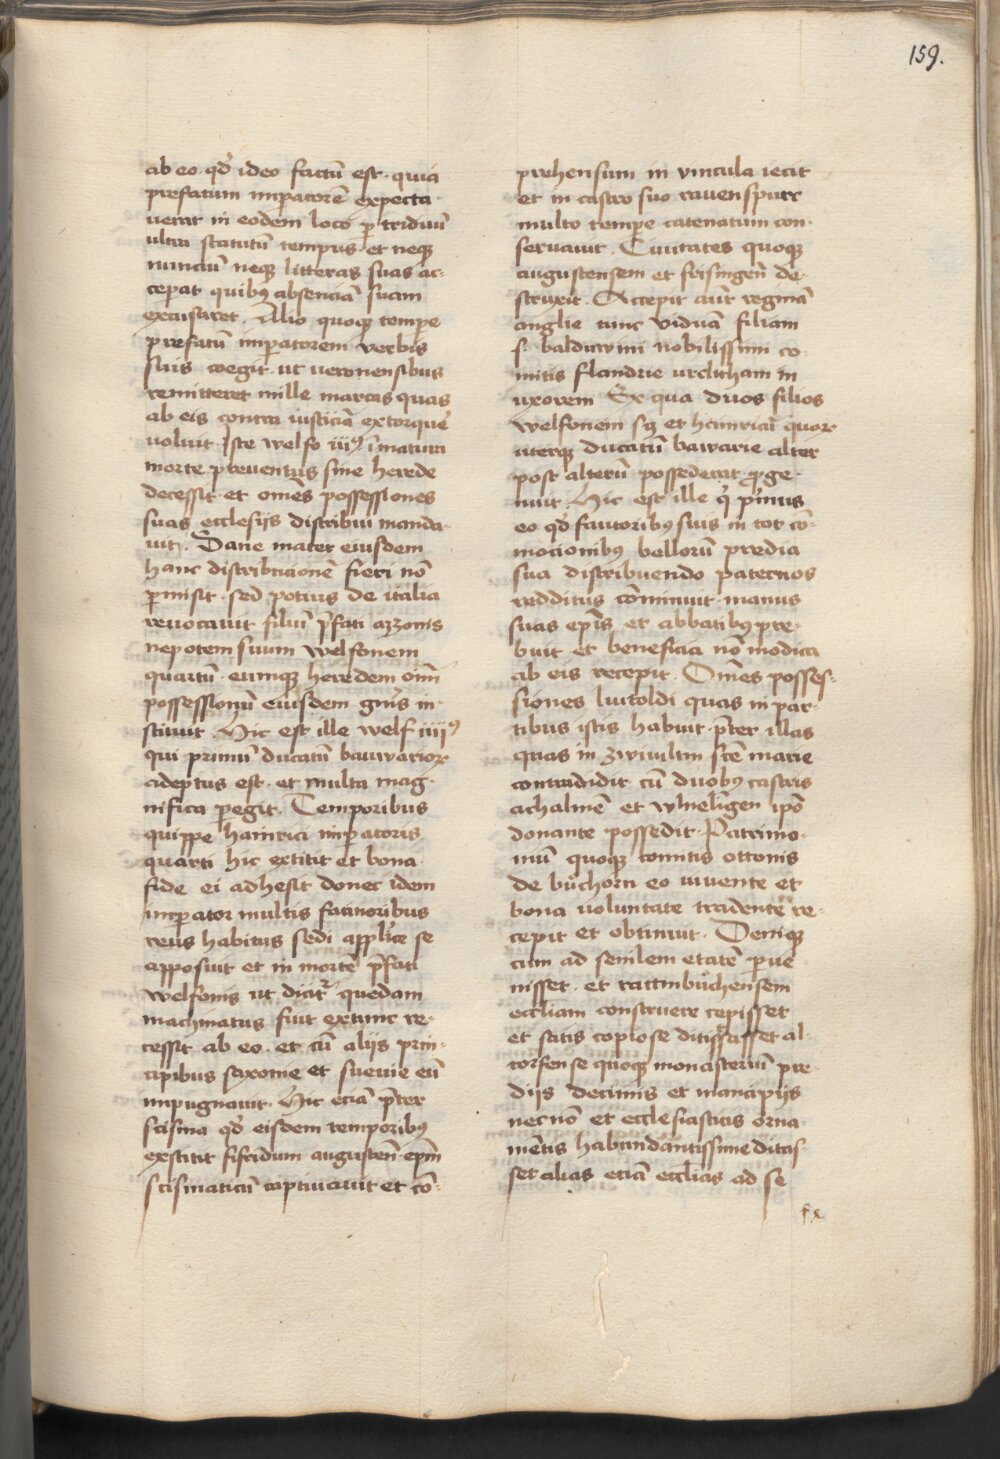 159.
ab eo. qd̄ ideo factū est. quia
prefatum imꝑatorē expecta-
uerat in eodem loco ꝑ triduū
ultra statutū tempus et neqꝫ
nunciū neqꝫ litteras suas ac-
ceperat quibꝰ absenciā suam
excusaret. Alio quoqꝫ tempe
prefatū imꝑatorem verbis
suis coegit. ut ueronensibus
remitteret mille marcas quas
ab eis contra iusticiā extorquē
uoluit. Iste welfo iiiꝰ īmatura
morte preventus sine herede
decessit. et omēs possessiones
suas ecclesijs distribui manda-
uit. Sane mater eiusdem
hanc distribucionē fieri nō
ꝑmisit. sed potius de italia
revocauit filiū p̄fati azzonis
nepotem suum welfonem
quartū. eumqꝫ heredem oīm
possessionū eiusdem gn̄is in-
stituit. Hic est ille welf iiiiꝰ
qui primū ducatū bauvarioꝝ
adeptus est. et multa mag-
nifica ꝑegit. Temporibus
quippe hainrici imꝑatoris
quarti hic extitit et bona
fide ei adhesit donec idem
imꝑator multis facinoribus
reus habitus sedi applice se
apposuit et in mortē p̄fati
welfonis ut dicit᷑ quedam
machinatus fuit extunc re-
cessit ab eo. et cū alijs prin-
cipibus saxonie et suevie eū
impugnauit. Hic eciā p̄ter
scisma qd̄ eisdem temporibꝰ
exstitit sifridum augusten̄ ep̄m
scismaticū captiuauit et cō-
prehensum in vincula iecit
et in castro suo ravenspurc
multo tempe catenatum con-
seruauit. Ciuitates quoqꝫ
augustensem et frisingen̄ de-
struxit. Accepit aūt reginā
anglie tunc viduā filiam
s. balduwini nobilissimi co-
mitis flandrie
in
uxorem Ex qua duos filios
welfonem sꝫ et hainricū quoꝝ
uterqꝫ ducatū bawarie alter
post alterū possederat ꝓge-
nuit. Hic est ille q̇ p̄imus
eo qd̄ fautoribꝰ suis in tot cō-
mocionibꝰ bellorū predia
sua distribuendo paternos
redditus cōminuit. manus
suas ep̄is et abbatibꝰ pre-
buit et beneficia nō modica
ab eis recepit. Omēs posses-
siones luitoldi quas in par-
tibus istis habuit. p̄ter illas
quas in zwiultm scē marie
contradidit cū duobꝰ castris
achalmē et wlnelīgen ipō
donante possedit. Patrimo-
niū quoqꝫ comitis ottonis
de bůchorn eo viuente et
bona uoluntate tradente re-
cepit et obtinuit. Deniqꝫ
cum ad senilem etatē ꝑue-
nisset. et raittinbůchensem
eccliam construere cepisset
et satis copiose ditasset al-
torfense quoqꝫ monasteriū pre-
dijs decimis et mancipijs
necnō et ecclesiasticis orna-
mētis habundantissime ditas-
set alias eciā ecclias ad se